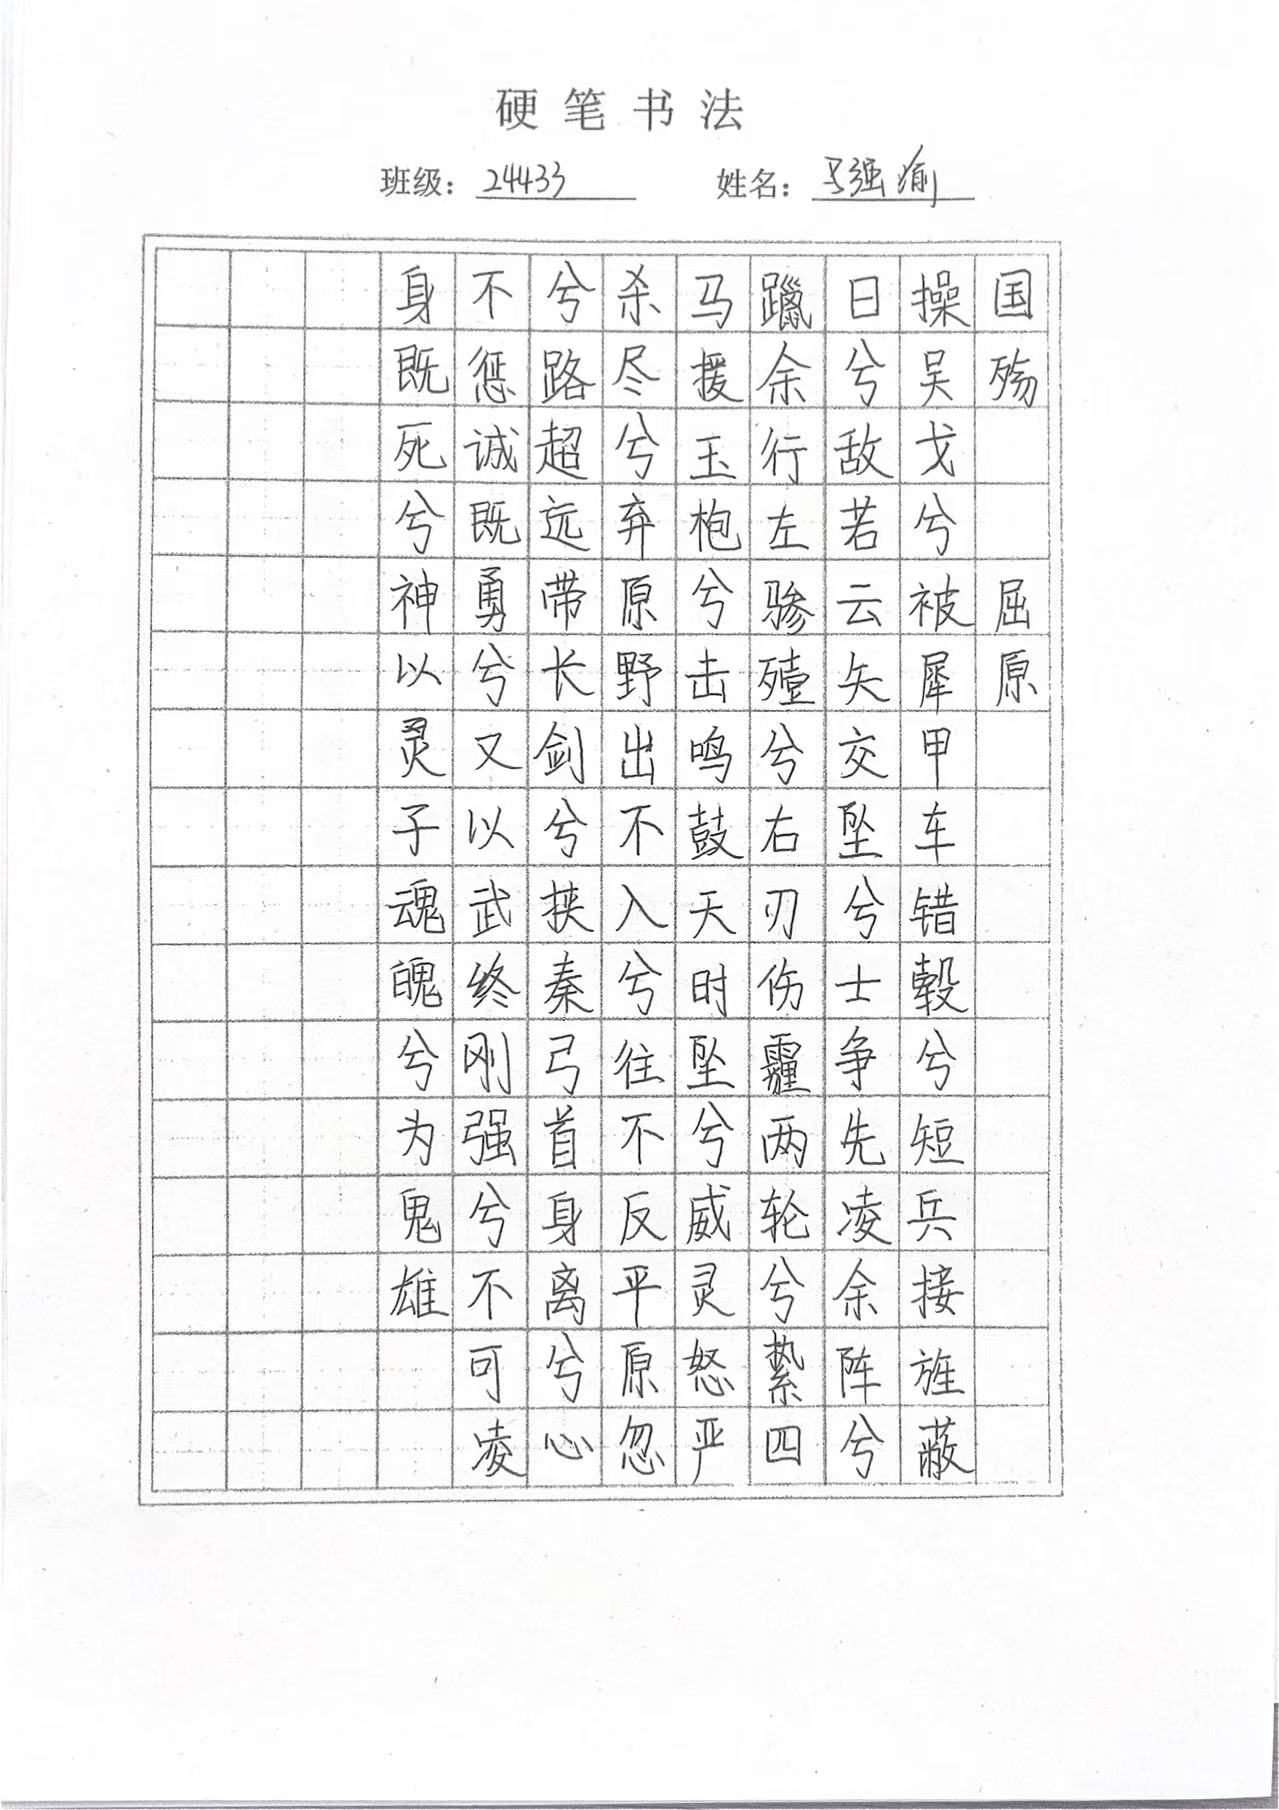 硬笔书法
班级：24433 姓名：马强瑜
国殇 屈原
操吴戈兮被犀甲车错毂兮短兵接旌蔽
日兮敌若云矢交坠兮士争先凌余阵兮
躐余行左骖殪兮右刃伤霾两轮兮絷四
马援玉枹兮击鸣鼓天时坠兮威灵怒严
杀尽兮弃原野出不入兮往不反平原忽
兮路超远带长剑兮挟秦弓首身离兮心
不惩诚既勇兮又以武终刚强兮不可凌
身既死兮神以灵子魂魄兮为鬼雄